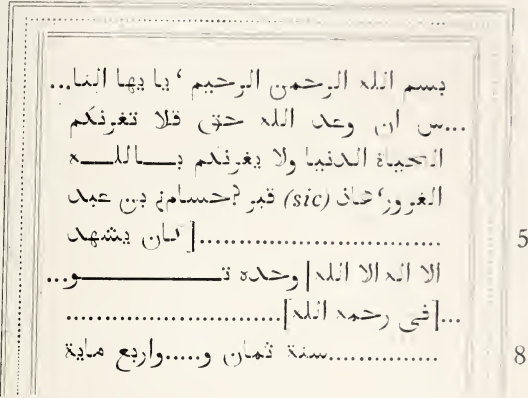 بسم الله الرحمن الرحيم ' يا يها النا...
...س ان وعد الله حق فلا تغرنكم
الحياة الدنيا ولا يغرنكم بـــاللـــه
الغرور' هاذ (sic) قبر ?حسام? بن عبد
..............................[كان يشهد 5
الا اله الا الله] وحده تـــــــــو...
...[فى رحمه الله]...........................
...............سنة ثمان و.....واربع ماية 8